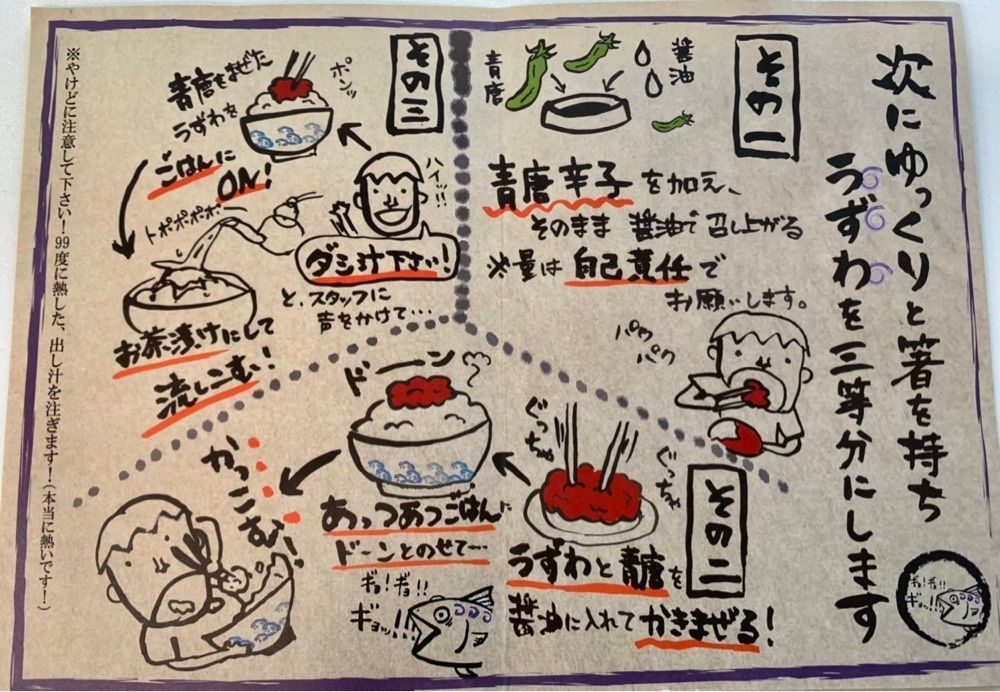 次にゆっくりと箸を持ち
うずわを三等分にします
その一
醤油
青唐
青唐辛子を加え、
そのまま醤油で召し上がる
※量は自己責任で
お願いします。
パク
パク
その二
ぐっちゃ
ぐっちゃ
うずわと青唐を
醤油に入れてかきまぜる!
ドーン
あっつあつごはんに
ドーンとのせて…
かっこむ!
ギョ!ギョ!!
ギョッ!!
その三
ハイッ!!
ダシ汁下さい!
と、スタッフに
声をかけて…
ポンッ
青唐をまぜた
うずわを
ごはんに
ON!
トポポポポ
お茶漬けにして
流しこむ!
※やけどに注意して下さい!99度に熱した、出し汁を注ぎます!(本当に熱いです!)
ギョ!ギョ!!
ギョッ!!